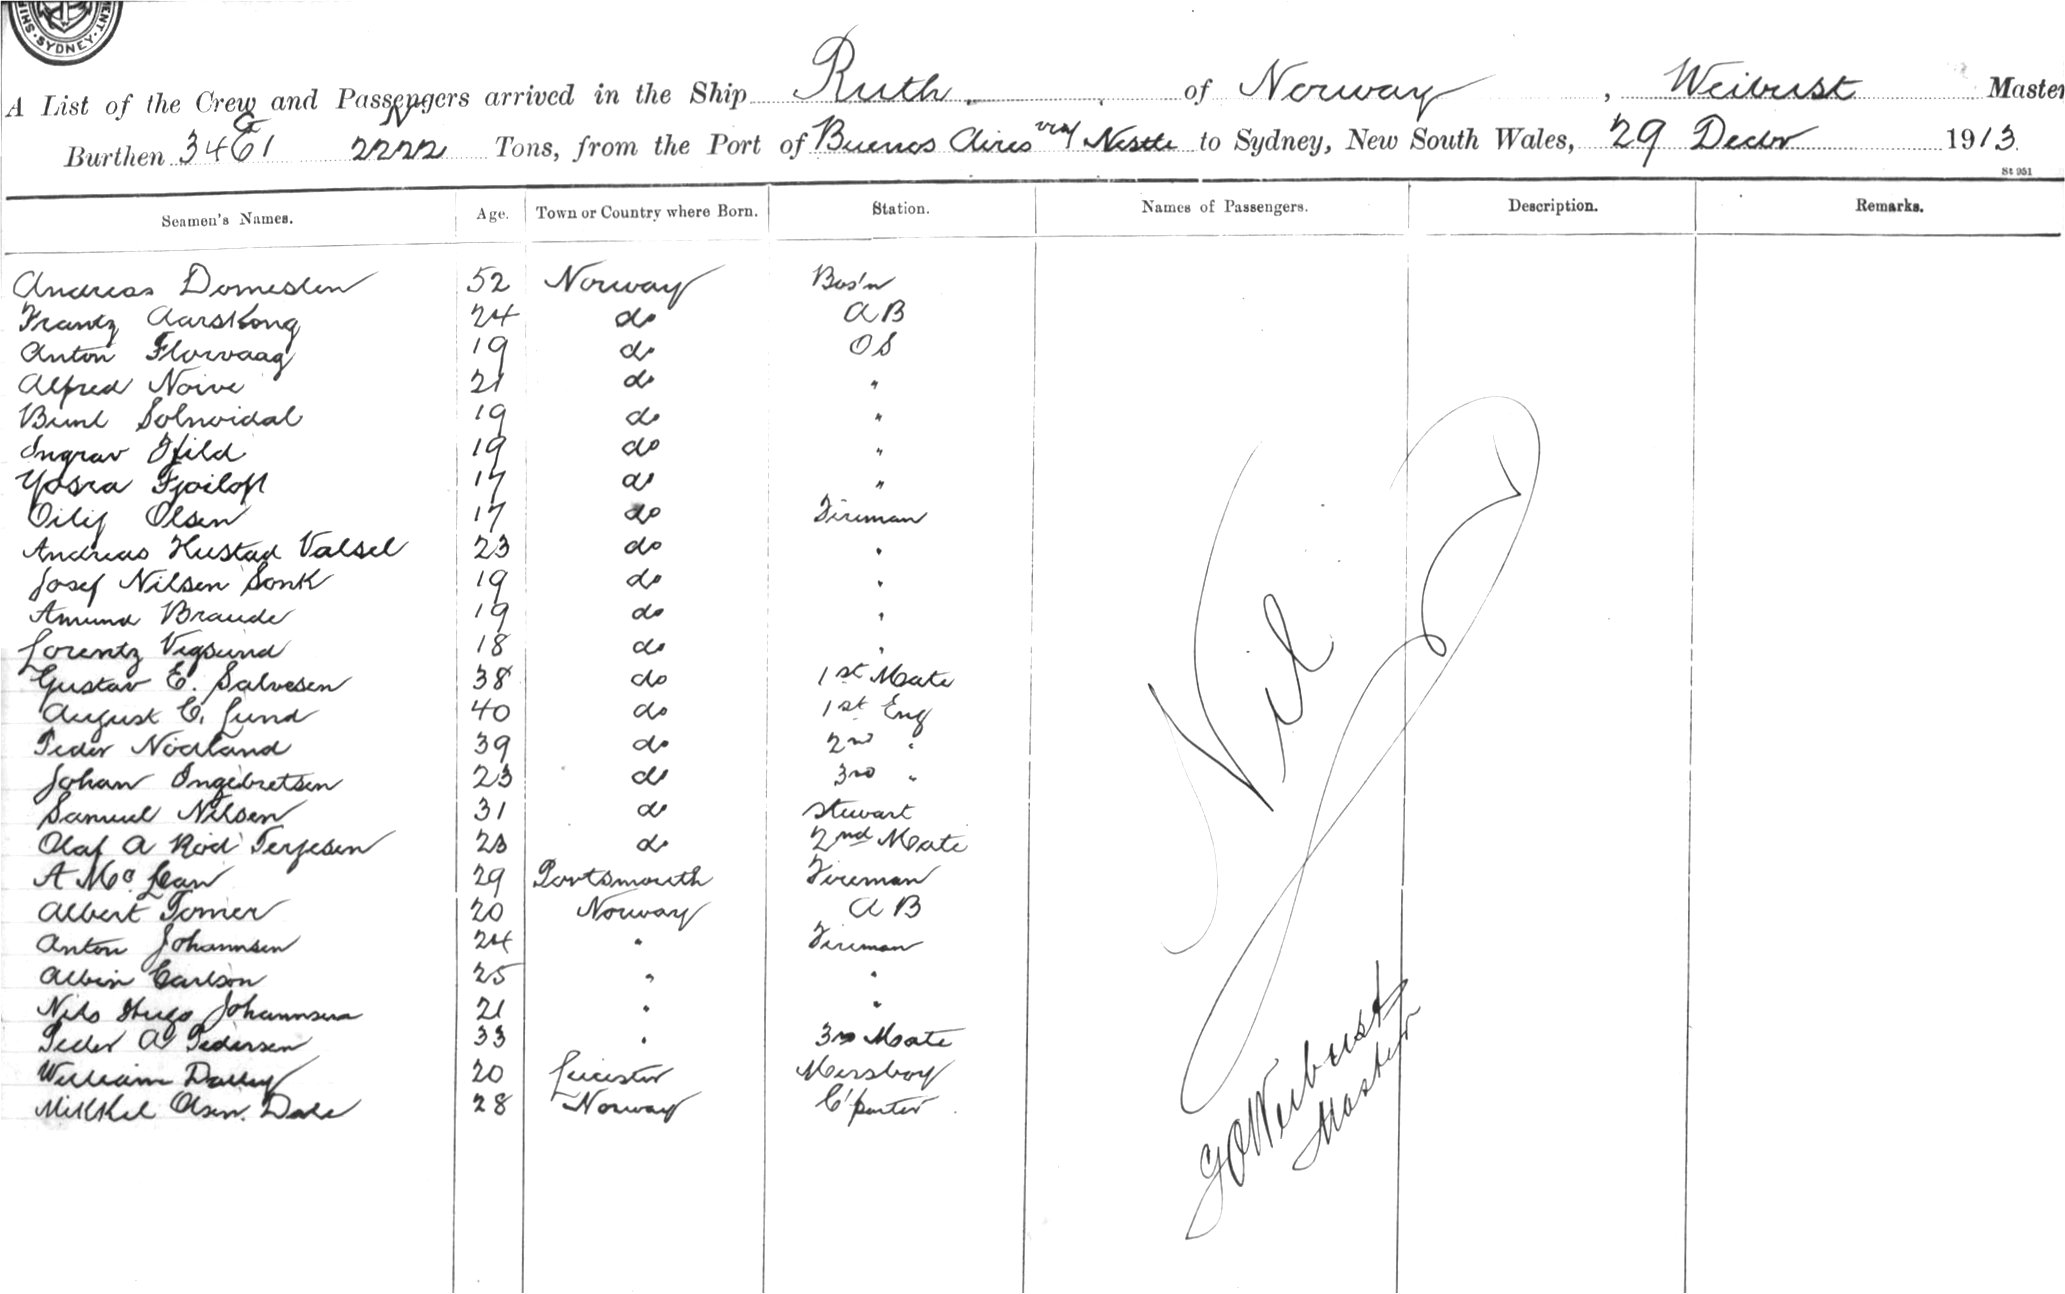 SYDNEY
A List of the Crew and Passengers arrived in the Ship Ruth of Norway, Weibust Master
G N
Burthen 3461 2222 Tons, from the Port of Buenos Aires via Nstle to Sydney, New South Wales, 29 Decbr 1913.
St 951
Seamen's Names. Age. Town or Country where Born. Station. Names of Passengers. Description. Remarks.
Andreas Domeslen 52 Norway Bos'n
Frantz Aarskong 24 do AB
Anton Florvaag 19 do OS
Alfred Noive 21 do "
Solnoidal 19 do "
Ingrav 19 do "
Fjoiloft 17 do "
Oilif Olsen 17 do Fireman
Andreas Hustad Valsel 23 do "
Josef Nilsen Sonk 19 do "
Amund Braude 19 do "
Lorentz Vigsund 18 do "
Gustav E. Salvesen 38 do 1st Mate
August C. Lund 40 do 1st Eng
Peder Nodland 39 do 2nd "
Johan Ingebretsen 23 do 3rd "
Samuel Nilsen 31 do Stewart
Olaf A Rod Terjesen 23 do 2nd Mate
A McLean 29 Portsmouth Fireman
Albert Torner 20 Norway AB
Anton Johannsen 24 " Fireman
Albin Carlson 25 " "
Nils Hugo Johannsen 21 " "
Peder A Pedersen 33 " 3rd Mate
William Dalley 20 Leicester Mersboy
Mikkel Olsen Dale 28 Norway C'penter
Nil
Weibust
Master